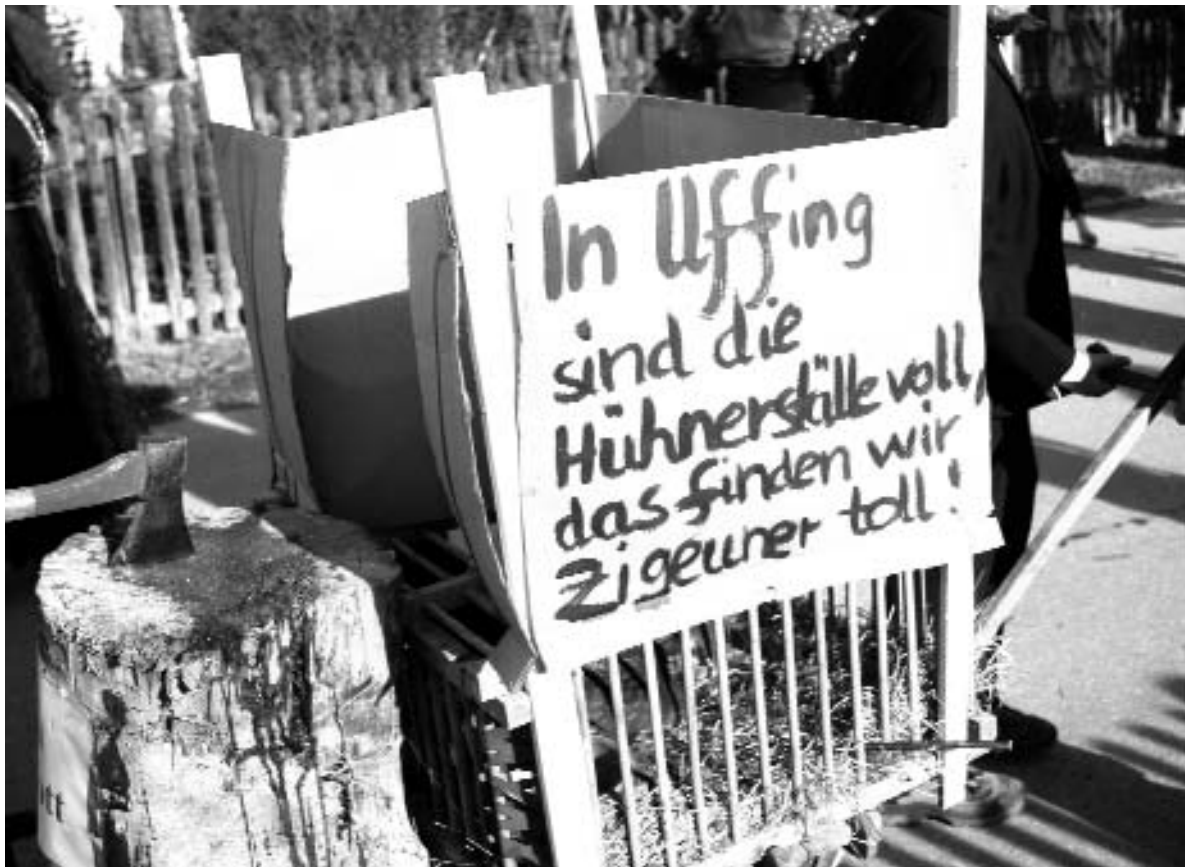 In Uffing
sind die
Hühnerställe voll,
das finden wir
Zigeuner toll!
tt